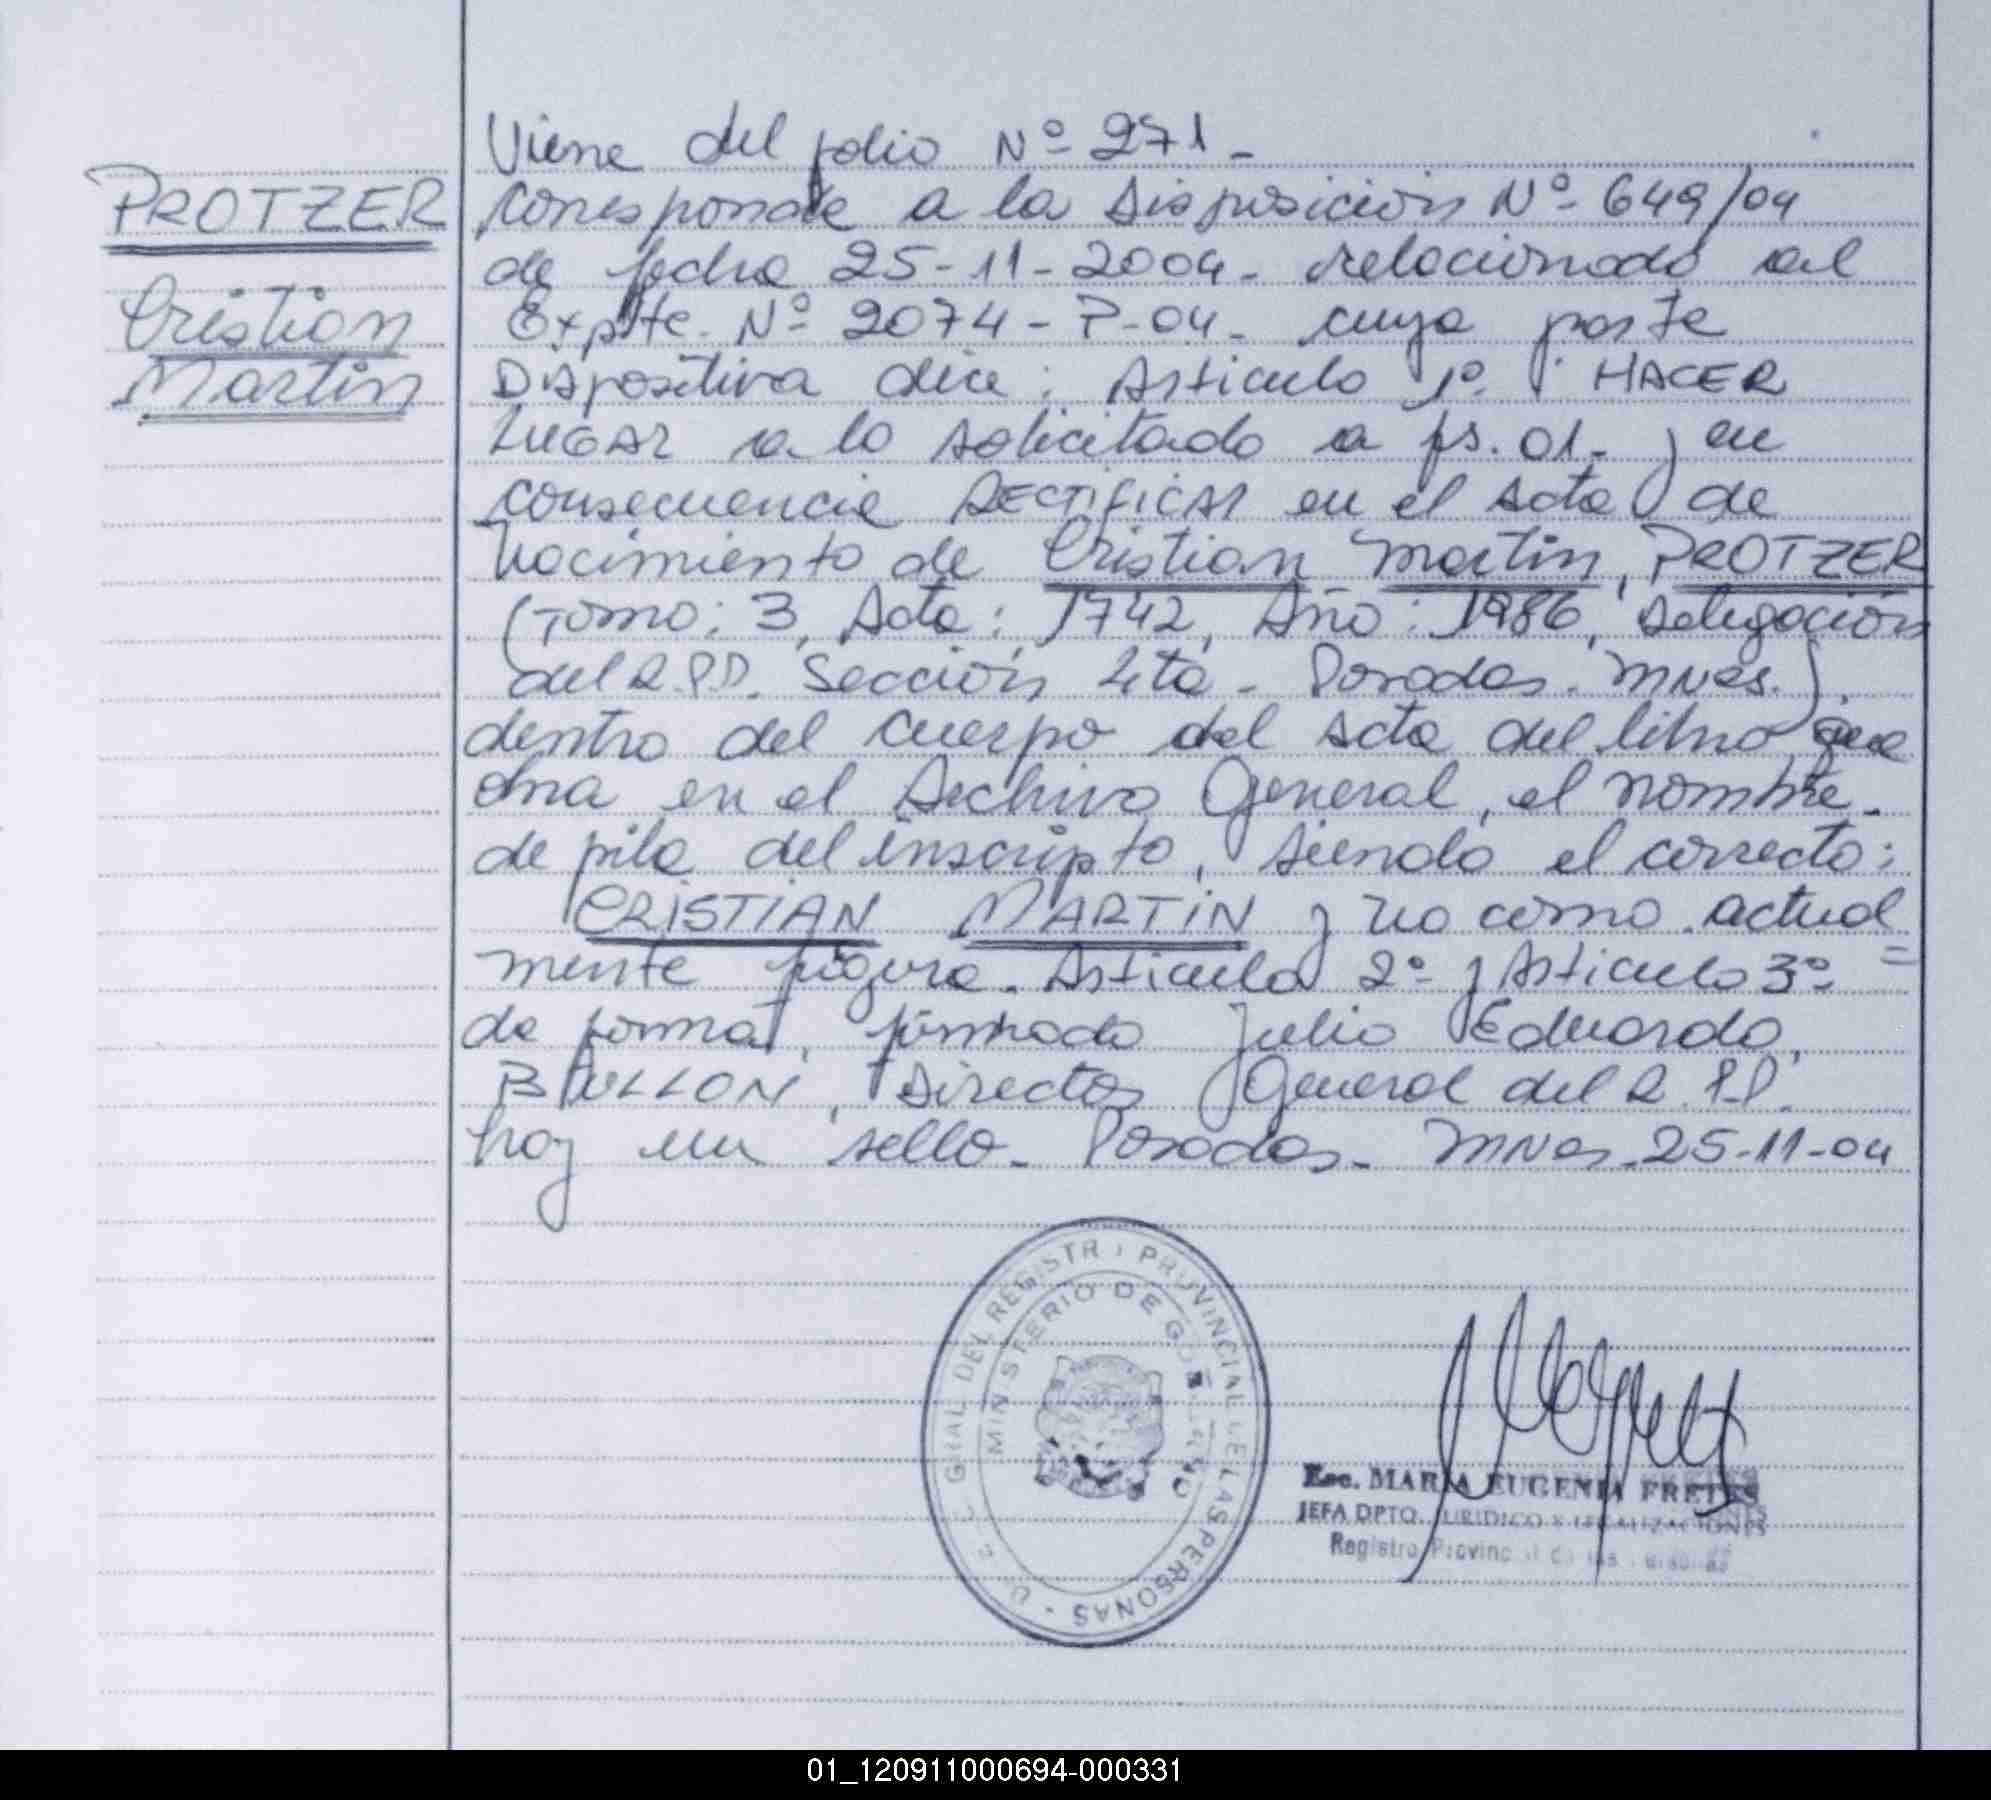 Viene del folio Nº 271 -
PROTZER
Cristian
Martin
Corresponde a la Disposición Nº 649/04
de fecha 25-11-2004 - relacionado al
Expte. Nº 2074-P-04 - cuya parte
Dispositiva dice: Artículo 1º: HACER
LUGAR a lo solicitado a fs. 01 - y en
consecuencia RECTIFICAR en el acta de
nacimiento de Cristian Martin, PROTZER
(Tomo: 3, Acta: 1742, Año: 1986, delegación
del R.P.P. Sección 4ta - Posadas. Mnes.),
dentro del cuerpo del acta del libro que
obra en el Archivo General, el nombre
de pila del inscripto, siendo el correcto:
CRISTIAN MARTIN y no como actual=
mente figura. Artículo 2º y Artículo 3º
de forma, firmado Julio Eduardo,
BULLON, Director General del R.P.P.
hay un sello - Posadas - Mnes - 25-11-04
GRAL DEL REGISTRO PROVINCIAL DE LAS PERSONAS
MINISTERIO DE GOBIERNO
Esc. MARIA EUGENIA FRETES
JEFA DPTO. JURIDICO Y LEGALIZACIONES
Registro Provincial de las Personas
01_120911000694-000331